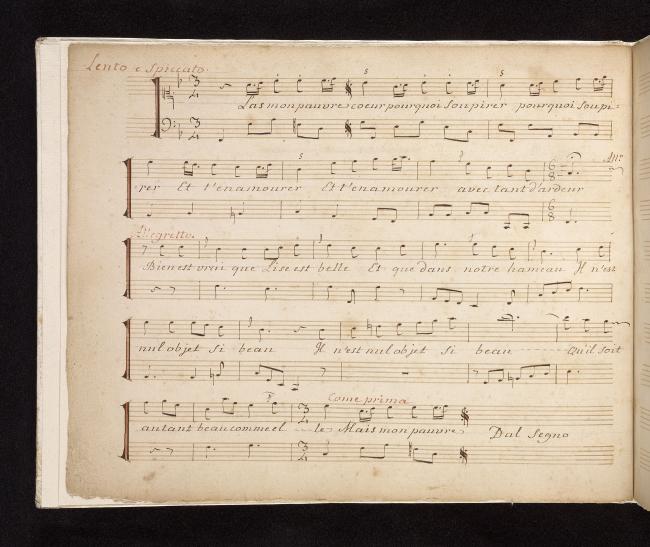 Lento e Spiccato.
Las mon pauvre coeur pourquoi soupirer pourquoi soupi=
=rer Et t'enamourer Et t'enamourer avec tant d'ardeur
Allegretto.
Bien est vrai que Lise est belle Et que dans notre hameau Il n'est
nul objet si beau Il n'est nul objet si beau Qu'il soit
Come prima
autant beau comme el---le Mais mon pauvre Dal Segno